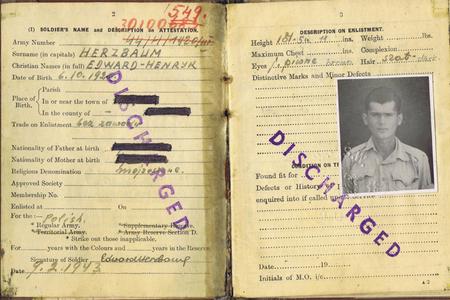 2
549.
(I) SOLDIER'S NAME and DESCRIPTION on ATTESTATION.
Army Number
Surname (in capitals) HERZBAUM
Christian Names (in full) EDWARD-HENRYK
Date of Birth 6.10.
Place of Birth
Parish
In or near the town of
In the county of
Trade on Enlistment bez zawodu
Nationality of Father at birth
Nationality of Mother at birth
Religious Denomination mojżeszowe
Approved Society
Membership No.
Enlisted at On
For the:— Polish
* Regular Army. * Supplementary Reserve.
* Territorial Army. * Army Reserve Section D.
* Strike out those inapplicable.
For years with the Colours and years in the Reserve.
Signature of Soldier EdwardHerzbaum
Date 9.2.1943
DISCHARGED
3
DESCRIPTION ON ENLISTMENT.
Height ft. 5 in. 11 Weight lbs.
Maximum Chest ins. Complexion
Eyes piwne brown Hair szat-dark
Distinctive Marks and Minor Defects
CONDITION ON
Found fit for
Defects or History of
enquired into if called up
Date 19
Initials of M.O. i/c
DISCHARGED
A 2